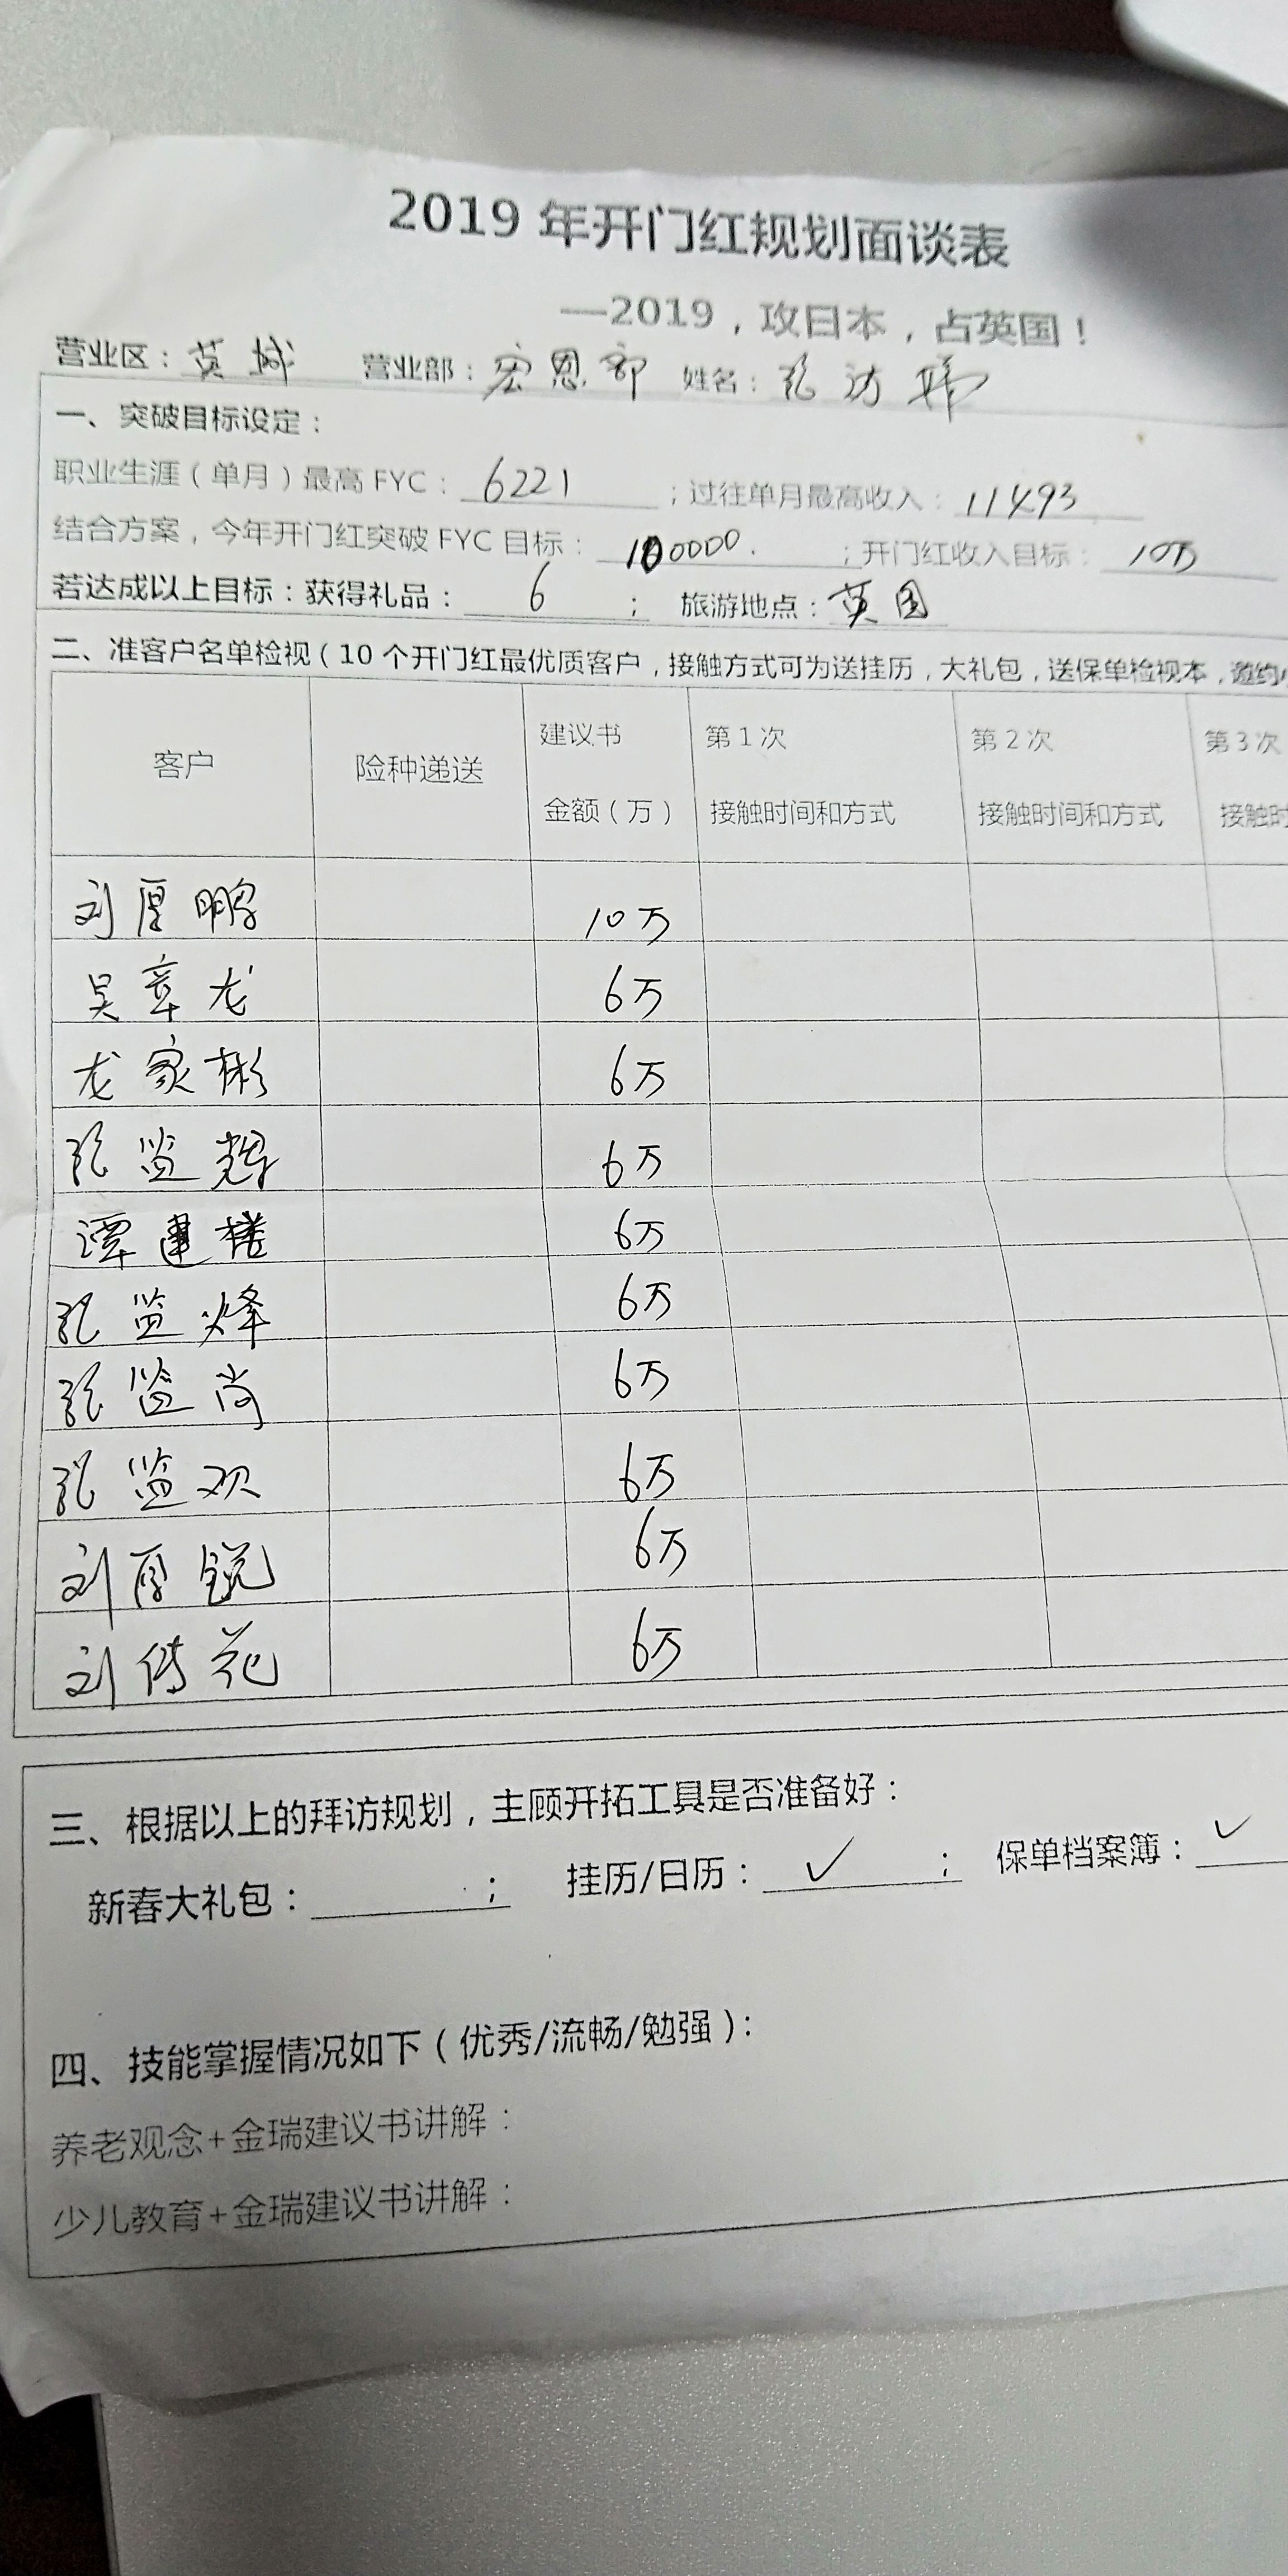 2019 年开门红规划面谈表
—2019，攻日本，占英国！
营业区：英城 营业部：宏恩部 姓名：张访婷
一、突破目标设定：
职业生涯（单月）最高 FYC：6221；过往单月最高收入：11493
结合方案，今年开门红突破 FYC 目标：100000.；开门红收入目标：10万
若达成以上目标：获得礼品：6； 旅游地点：英国
二、准客户名单检视（10 个开门红最优质客户，接触方式可为送挂历，大礼包，送保单检视本，邀约
客户 险种递送 建议书金额（万） 第1次接触时间和方式 第2次接触时间和方式 第3次接触时
刘厚鹏 10万
吴章龙 6万
龙家彬 6万
张监辉 6万
谭建楼 6万
张监烽 6万
张监尚 6万
张监欢 6万
刘厚锐 6万
刘传花 6万
三、根据以上的拜访规划，主顾开拓工具是否准备好：
新春大礼包：； 挂历/日历：✓； 保单档案簿：✓
四、技能掌握情况如下（优秀/流畅/勉强）：
养老观念+金瑞建议书讲解：
少儿教育+金瑞建议书讲解：